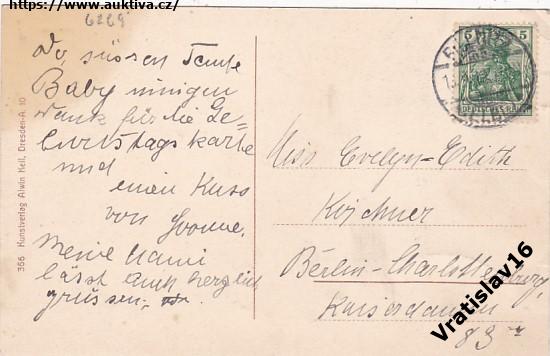 https://www.auktiva.cz/
6269
Du, süssen Tante
Baby innigen
Dank für die Ge-
burtstags karte
und
einen Kuss
von Yvonne.
Meine Mami
lässt auch herzlich
grüssen.
366 Kunstverlag Alwin Keil, Dresden-A. 10
5 5
DEUTSCHES REICH
Miss Evelyn-Edith
Kirchner
Berlin-Charlottenburg,
Kaiserdamm
83
Vratislav16